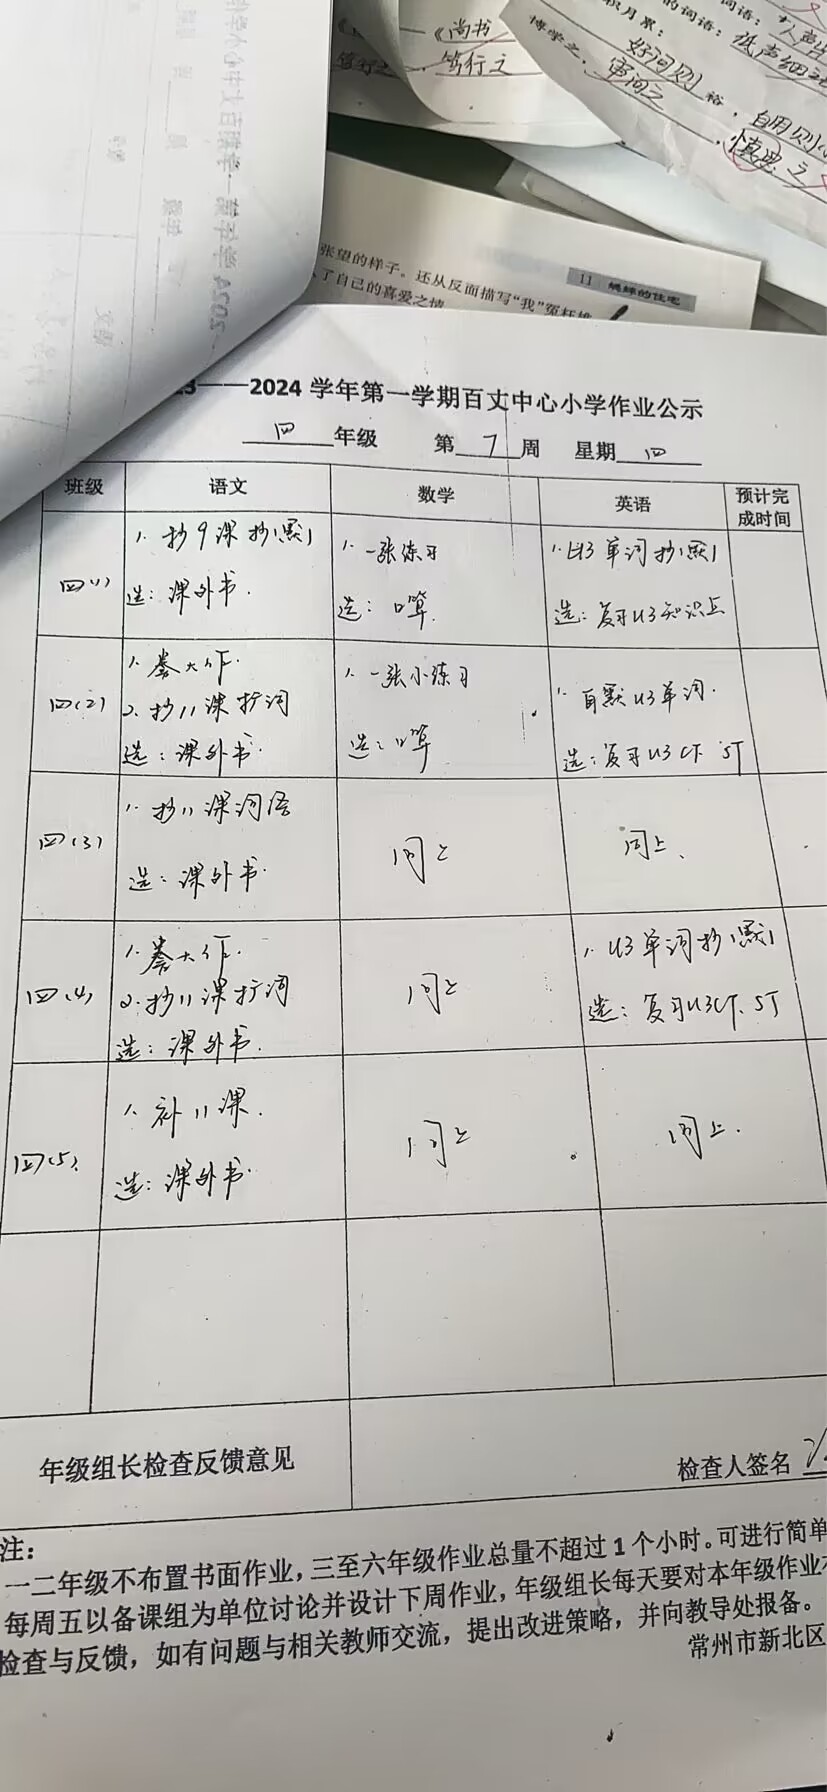 《尚书
笃行之
笃行之
积月累：
的词语：低声细
博学之，
好问则
裕，自用则
审问之
慎思之
张望的样子。还从反面描写“我”冤枉
了自己的喜爱之情
11 蟋蟀的住宅
23——2024学年第一学期百丈中心小学作业公示
四年级 第7周 星期四
班级 语文 数学 英语 预计完成时间
四(1)
1. 抄9课抄(默)
选：课外书.
1. 一张练习
选：口算.
1. U3单词抄(默)
选：复习U3知识点
四(2)
1. 誊大作.
2. 抄11课扩词
选：课外书.
1. 一张小练习
选：口算
1. 自默U3单词.
选：复习U3 CT. ST
四(3)
1. 抄11课词语
选：课外书.
同上
同上、
四(4)
1. 誊大作.
2. 抄11课扩词
选：课外书.
同上
1. U3单词抄(默)
选：复习U3CT、ST
四(5)
1. 补11课.
选：课外书.
同上
同上.
年级组长检查反馈意见
检查人签名
注：
一二年级不布置书面作业，三至六年级作业总量不超过1个小时。可进行简单
每周五以备课组为单位讨论并设计下周作业，年级组长每天要对本年级作业
检查与反馈，如有问题与相关教师交流，提出改进策略，并向教导处报备。
常州市新北区